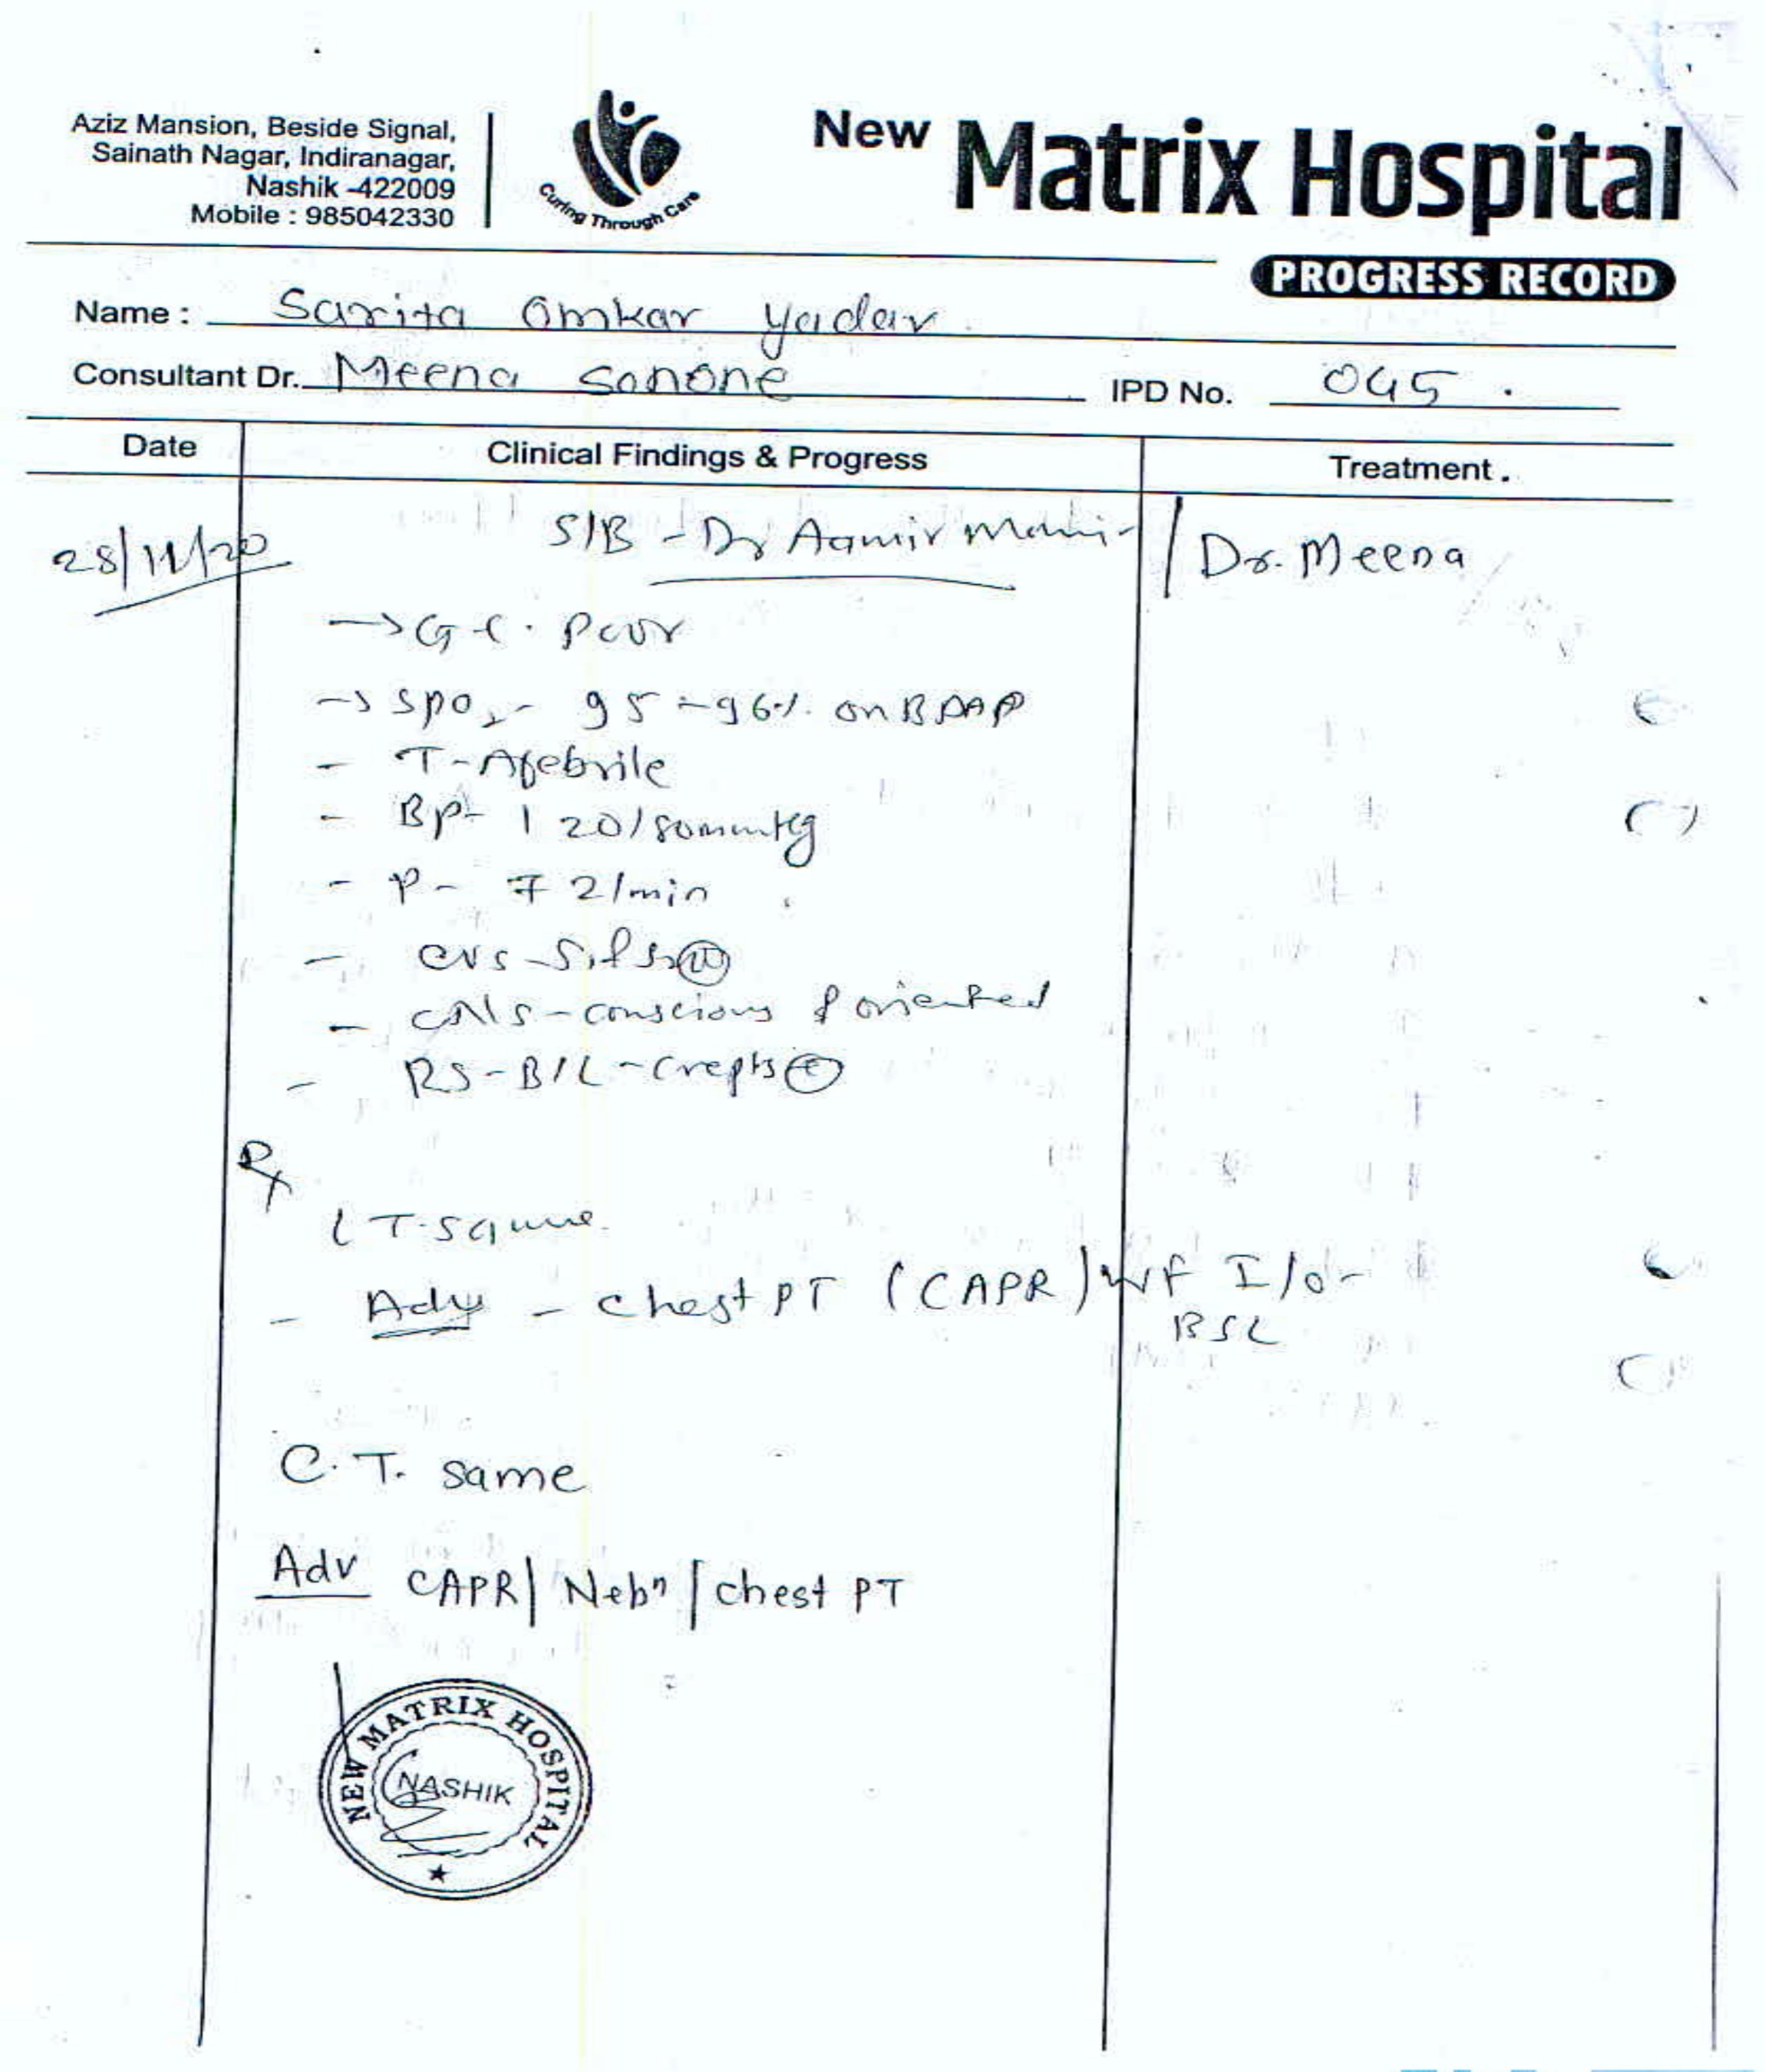 Aziz Mansion, Beside Signal,
Sainath Nagar, Indiranagar,
Nashik -422009
Mobile : 985042330
Curing Through Care
New Matrix Hospital
PROGRESS RECORD
Name : Sarita Omkar Yadav
Consultant Dr. Meena Sonone IPD No. 045
Date Clinical Findings & Progress Treatment .
28/11/20 S/B - Dr Aamir / Dr. Meena
→ G C . Poor
→ SPO2 - 95 - 96% on
- T - Afebrile
- BP - 120/80mmHg
- P - 72/min
- CVS - S1 S2 N
- CNS - conscious & oriented
- RS - B/L - Crepts +
Rx
C T. same
- Adv - Chest PT (CAPR) WF I/O -
BSL
C. T. same
Adv CAPR | Nebn | chest PT
NEW MATRIX HOSPITAL
NASHIK